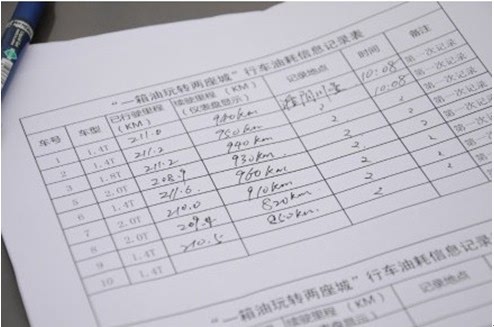 “一箱油玩转两座城”行车油耗信息记录表
车号 车型 已行驶里程（KM） 续驶里程（KM）（仪表盘显示） 记录地点 时间 备注
1 1.4T 211.0 940km 10:08 第一次记录
2 1.4T 211.2 10:08 第一次记录
3 211.2 940km 第一次记录
5 2.0T 208.9 930km 第一次记录
6 1.4T 211.6 960km 第一次记录
7 2.0T 210.0 910km 第一次记录
8 2.0T 209.4 820km 第一次记录
9 1.4T 210.5
10 1.4T
“一箱油玩转两座城”行车油耗信息记录表
记录地点 时间 备注
车号 车型
1 1.4T